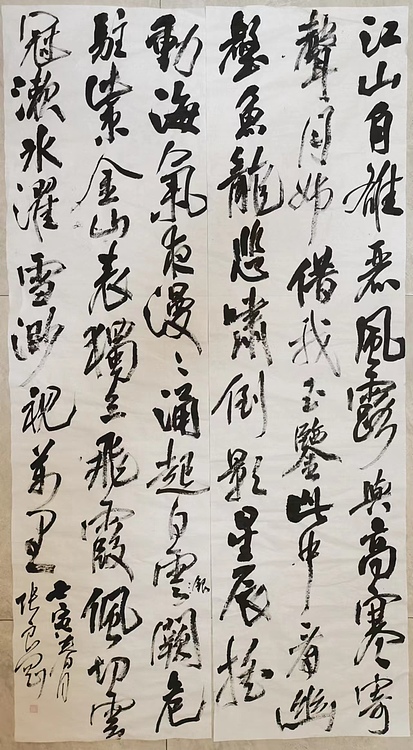 江山自雄麗風露與高寒寄
聲月姊借我玉鑒此中看幽
壑魚龍悲嘯倒影星辰搖
動海氣夜漫〻涌起白雲闕危
銀
駐紫金山表獨立飛霞佩切雲
冠漱冰濯雪渺視萬里
壬寅
张